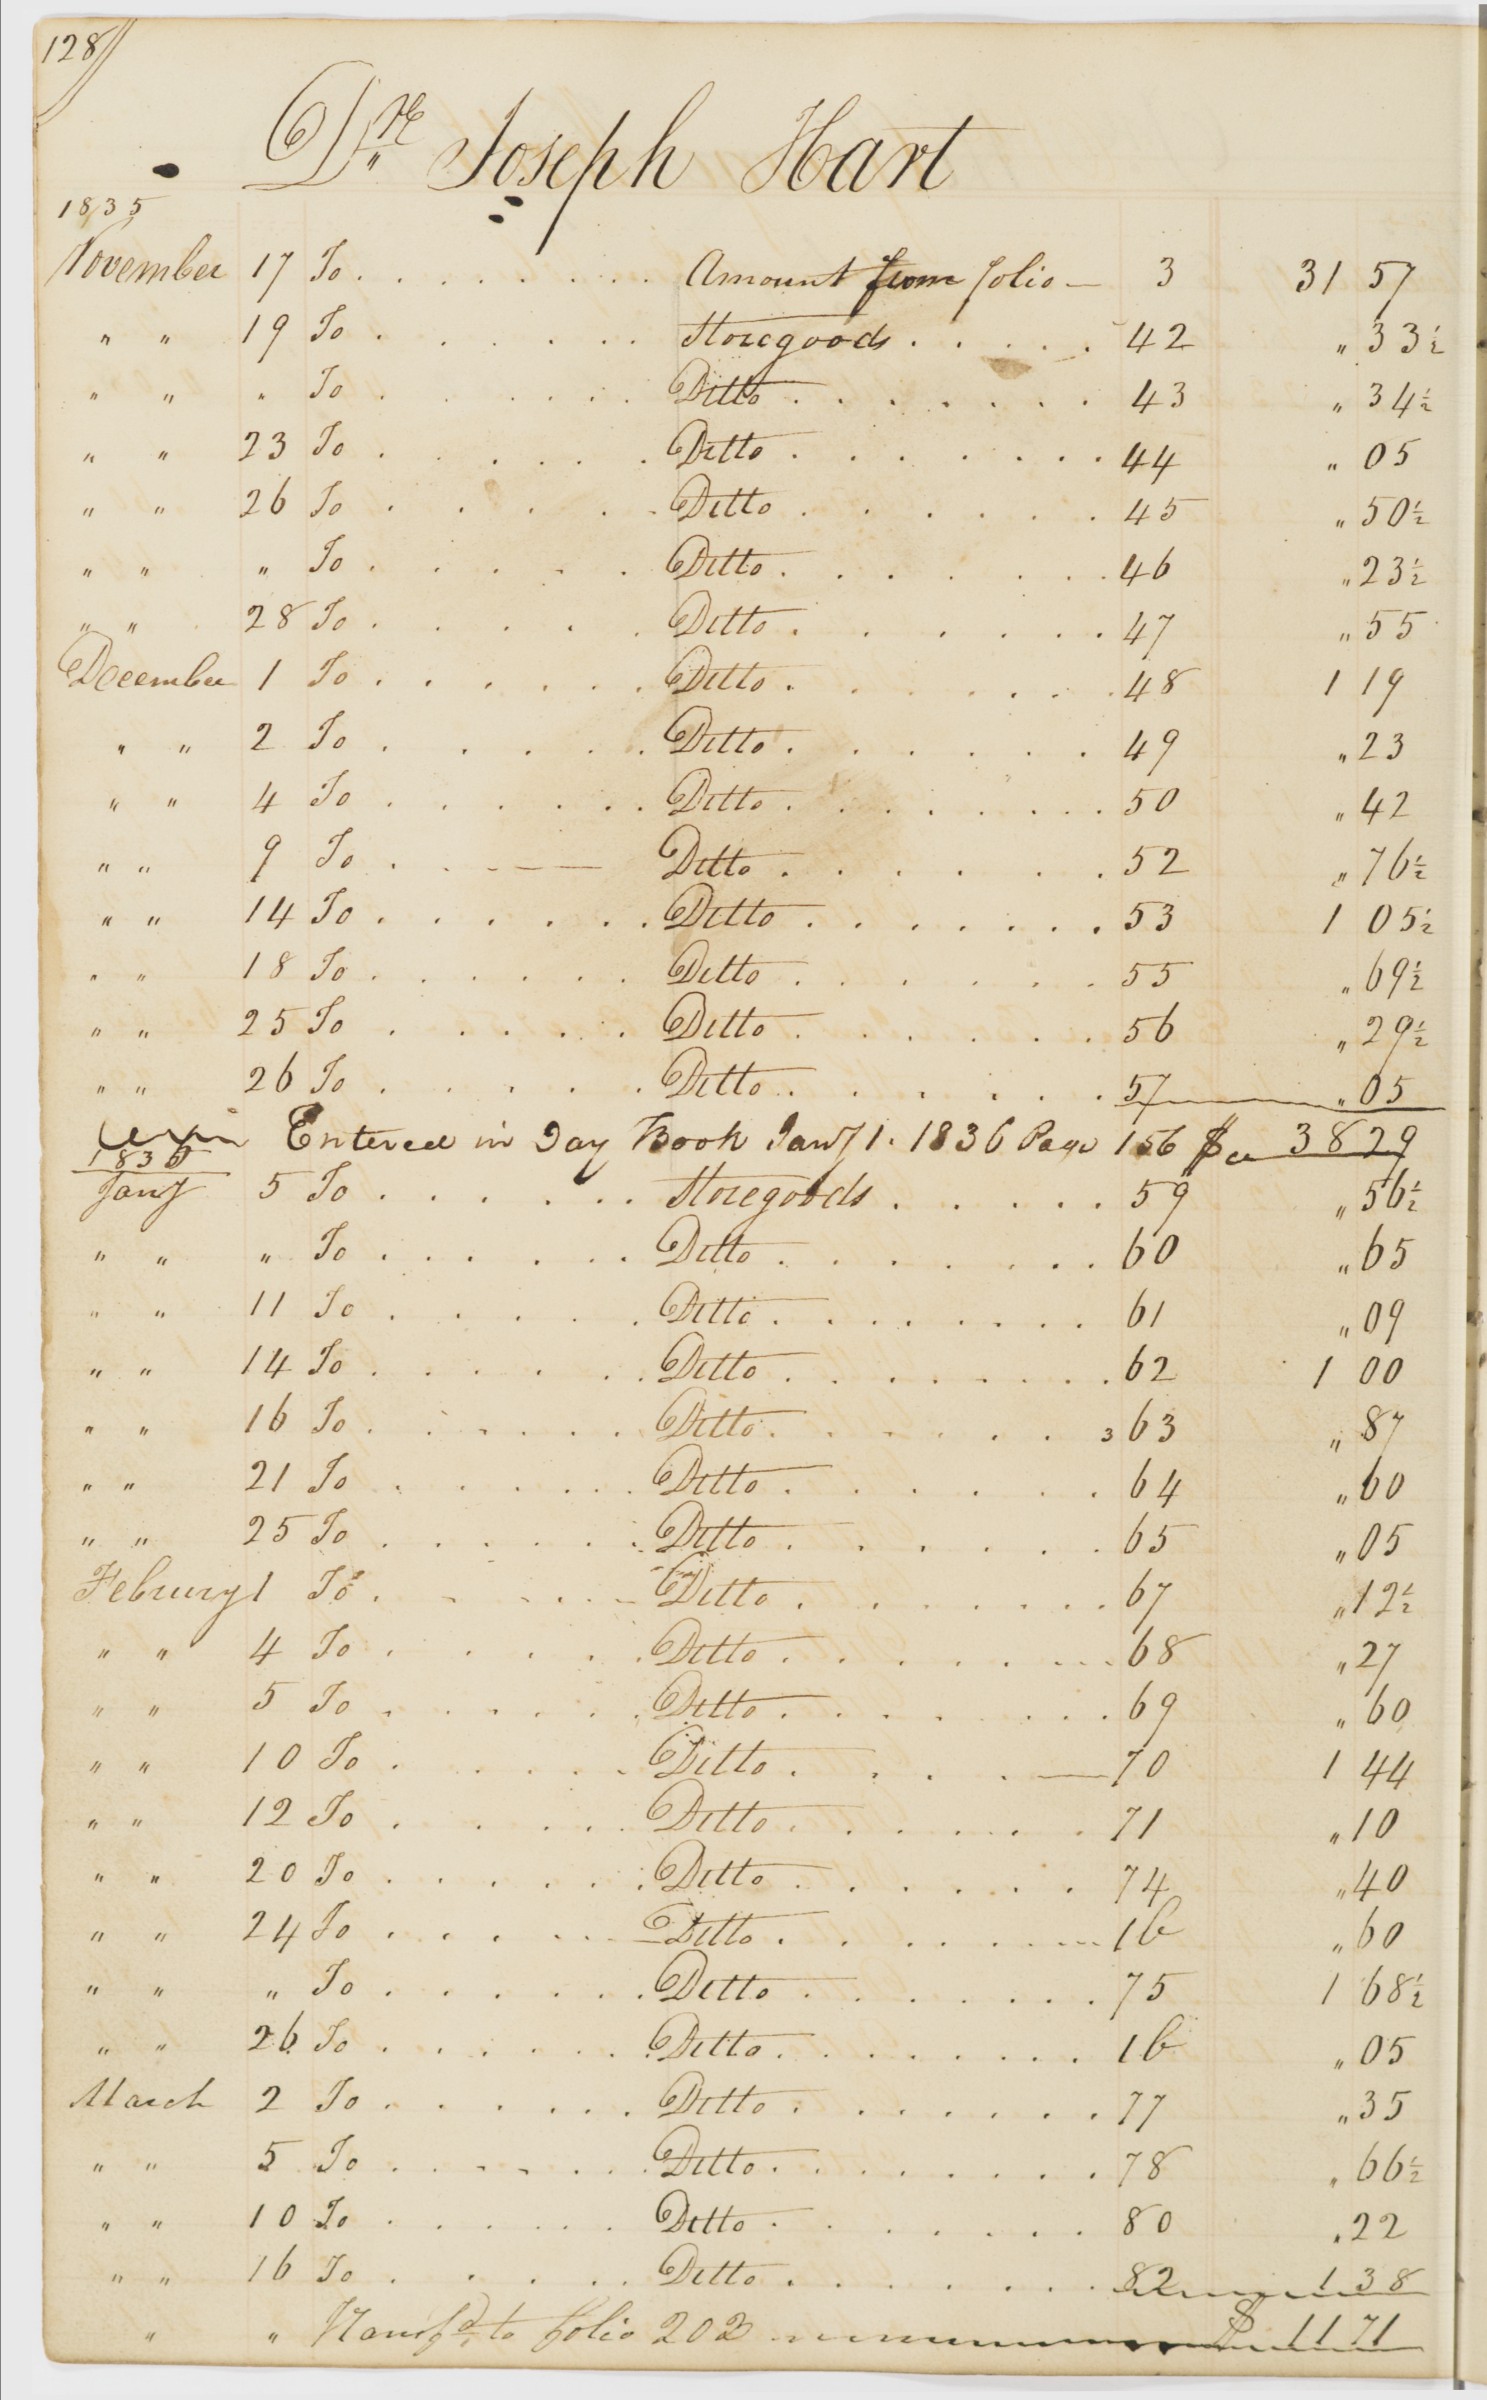 128
Dr Joseph Hart
1835
November 17 To . . . . . . . . Amount from folio — 3 31 57
" " 19 To . . . . . . Storegoods . . . . . 42 " 33½
" " " To . . . . . . Ditto . . . . . . . 43 " 34½
" " 23 To . . . . . . Ditto . . . . . . . 44 " 05
" " 26 To . . . . . . Ditto . . . . . . 45 " 50½
" " " To . . . . . . Ditto . . . . . . . 46 " 23½
" " 28 To . . . . . . Ditto . . . . . . 47 " 55
December 1 To . . . . . . Ditto . . . . . . 48 1 19
" " 2 To . . . . . . Ditto . . . . . . 49 " 23
" " 4 To . . . . . . Ditto . . . . . . . 50 " 42
" " 9 To . . — — Ditto . . . . . . 52 " 76½
" " 14 To . . . . . . Ditto . . . . . . . 53 1 05½
" " 18 To . . . . . . Ditto . . . . . . 55 " 69½
" " 25 To . . . . . Ditto . . . . . . 56 " 29½
" " 26 To . . . . . Ditto . . . . . . 57 " 05
Entered in Day Book Jany 1. 1836 Page 156 $ 38 29
1836
Jany 5 To . . . . . . Storegoods . . . . . 59 " 56½
" " " To . . . . . . Ditto . . . . . . . 60 " 65
" " 11 To . . . . . . Ditto . . . . . . . 61 " 09
" " 14 To . . . . . . Ditto . . . . . . . 62 1 00
" " 16 To . . . . . . Ditto . . . . . . 3 63 " 87
" " 21 To . . . . . . Ditto . . . . . . 64 " 60
" " 25 To . . . . . . Ditto . . . . . . 65 " 05
Februry 1 To . . . . . Ditto . . . . . . 67 " 12½
" " 4 To . . . . . Ditto . . . . . . . 68 " 27
" " 5 To . . . . . . Ditto . . . . . . . 69 " 60
" " 10 To . . . . . Ditto . . . . — 70 1 44
" " 12 To . . . . . Ditto . . . . . . 71 " 10
" " 20 To . . . . . . Ditto . . . . . . 74 " 40
" " 24 To . . . . . . Ditto . . . . . . 1b " 60
" " " To . . . . . . Ditto . . . . . . 75 1 68½
" " 26 To . . . . . . Ditto . . . . . . . 1b " 05
March 2 To . . . . . . Ditto . . . . . . 77 " 35
" " 5 To . . . . . . Ditto . . . . . . . 78 " 66½
" " 10 To . . . . . . Ditto . . . . . . 80 " 22
" " 16 To . . . . . Ditto . . . . . . 82 1 38
" " Transfd to folio 202 $ 11 71